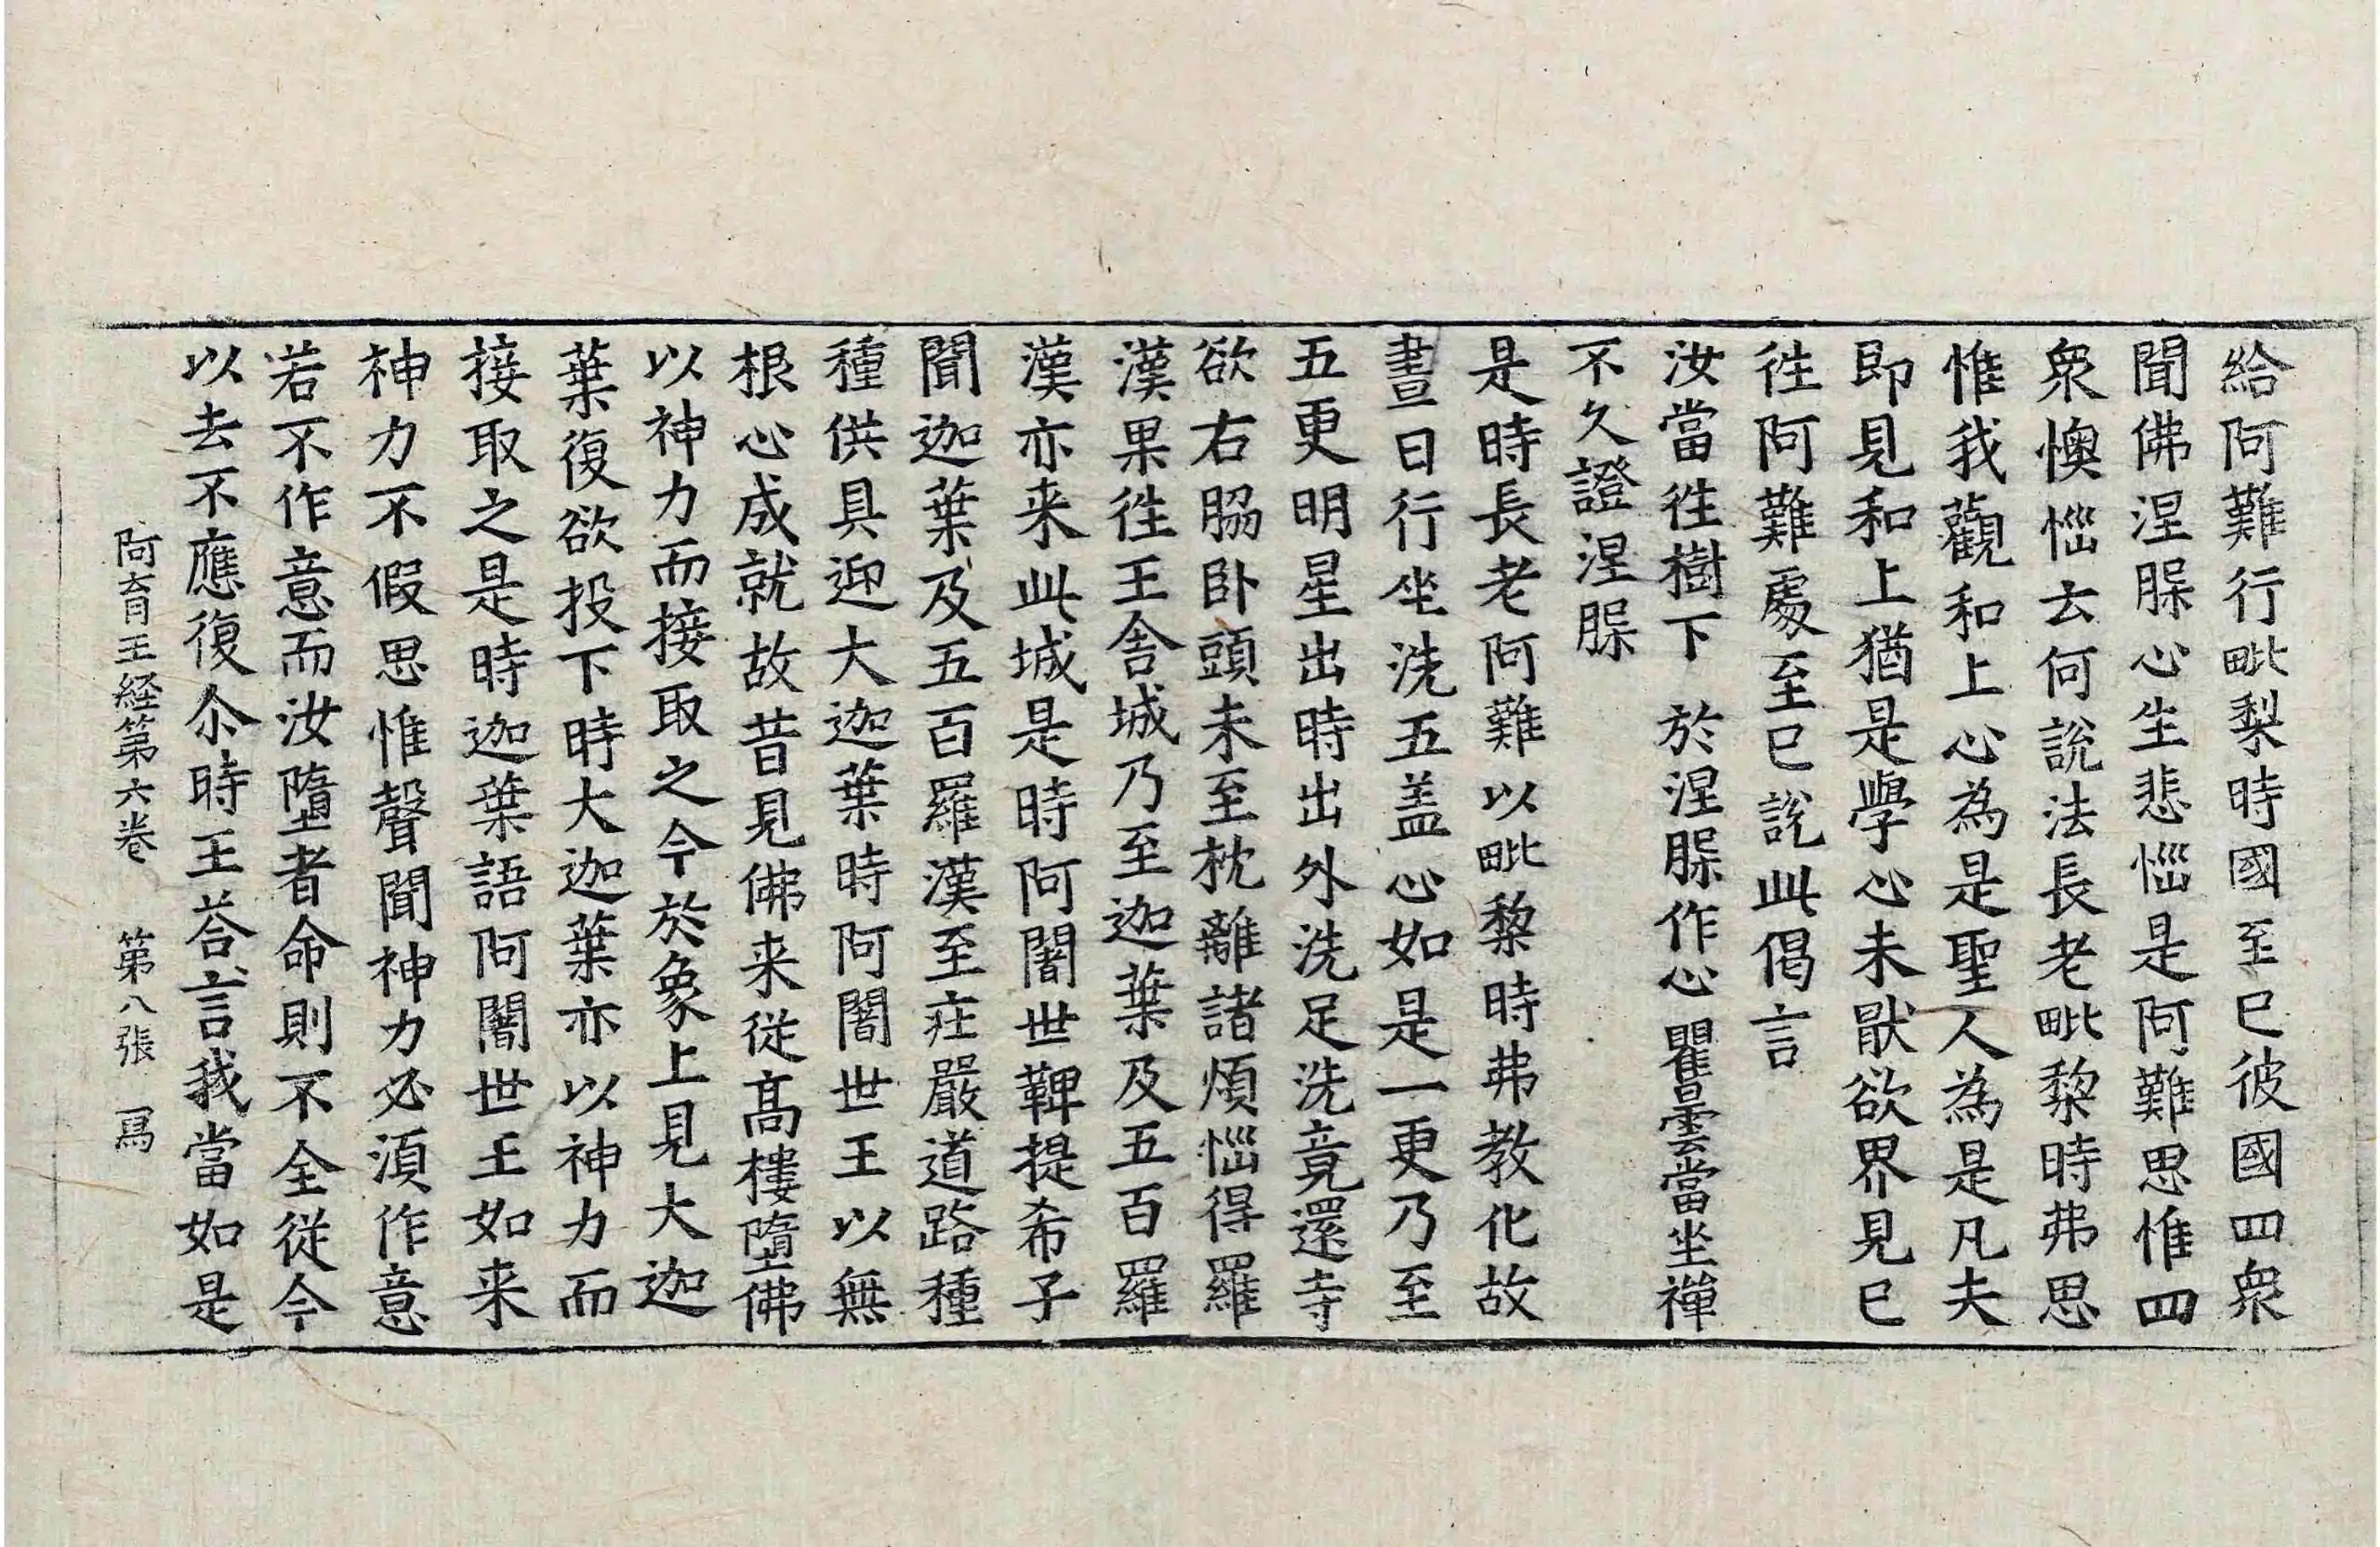 給阿難行毗梨時國至已彼國四衆
聞佛涅脲心生悲惱是阿難思惟四
衆懊惱云何說法長老毗黎時弗思
惟我觀和上心為是聖人為是凡夫
即見和上猶是學心未猒欲界見已
往阿難處至已說此偈言
汝當往樹下　於涅脲作心　瞿曇當坐禪
不久證涅脲
是時長老阿難以毗黎時弗教化故
晝日行坐洗五盖心如是一更乃至
五更明星出時出外洗足洗竟還寺
欲右脇卧頭未至枕離諸煩惱得羅
漢果往王舍城乃至迦葉及五百羅
漢亦来此城是時阿闍世鞞提希子
聞迦葉及五百羅漢至莊嚴道路種
種供具迎大迦葉時阿闍世王以無
根心成就故昔見佛来從髙樓墮佛
以神力而接取之今於象上見大迦
葉復欲投下時大迦葉亦以神力而
接取之是時迦葉語阿闍世王如来
神力不假思惟聲聞神力必湏作意
若不作意而汝墮者命則不全從今
以去不應復尒時王荅言我當如是
阿育王経第六卷　第八張　寫